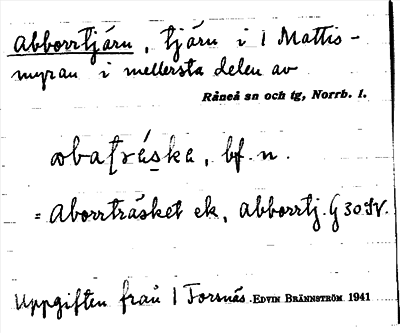 Abborrtjärn, tjärn i l Mattis-
myran i mellersta delen av
Råneå sn och tg, Norrb. l.
bf. n.
= Aborrträsket ek, abborrtj. G 30 SV.
Uppgiften från l Forsnäs. EDVIN BRÄNNSTRÖM 1941